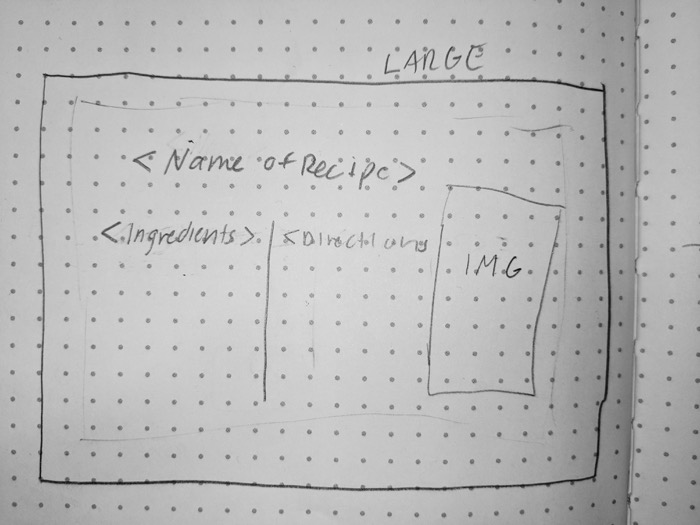 LARGE
<Name of Recipe>
<Ingredients> <Directions
IMG